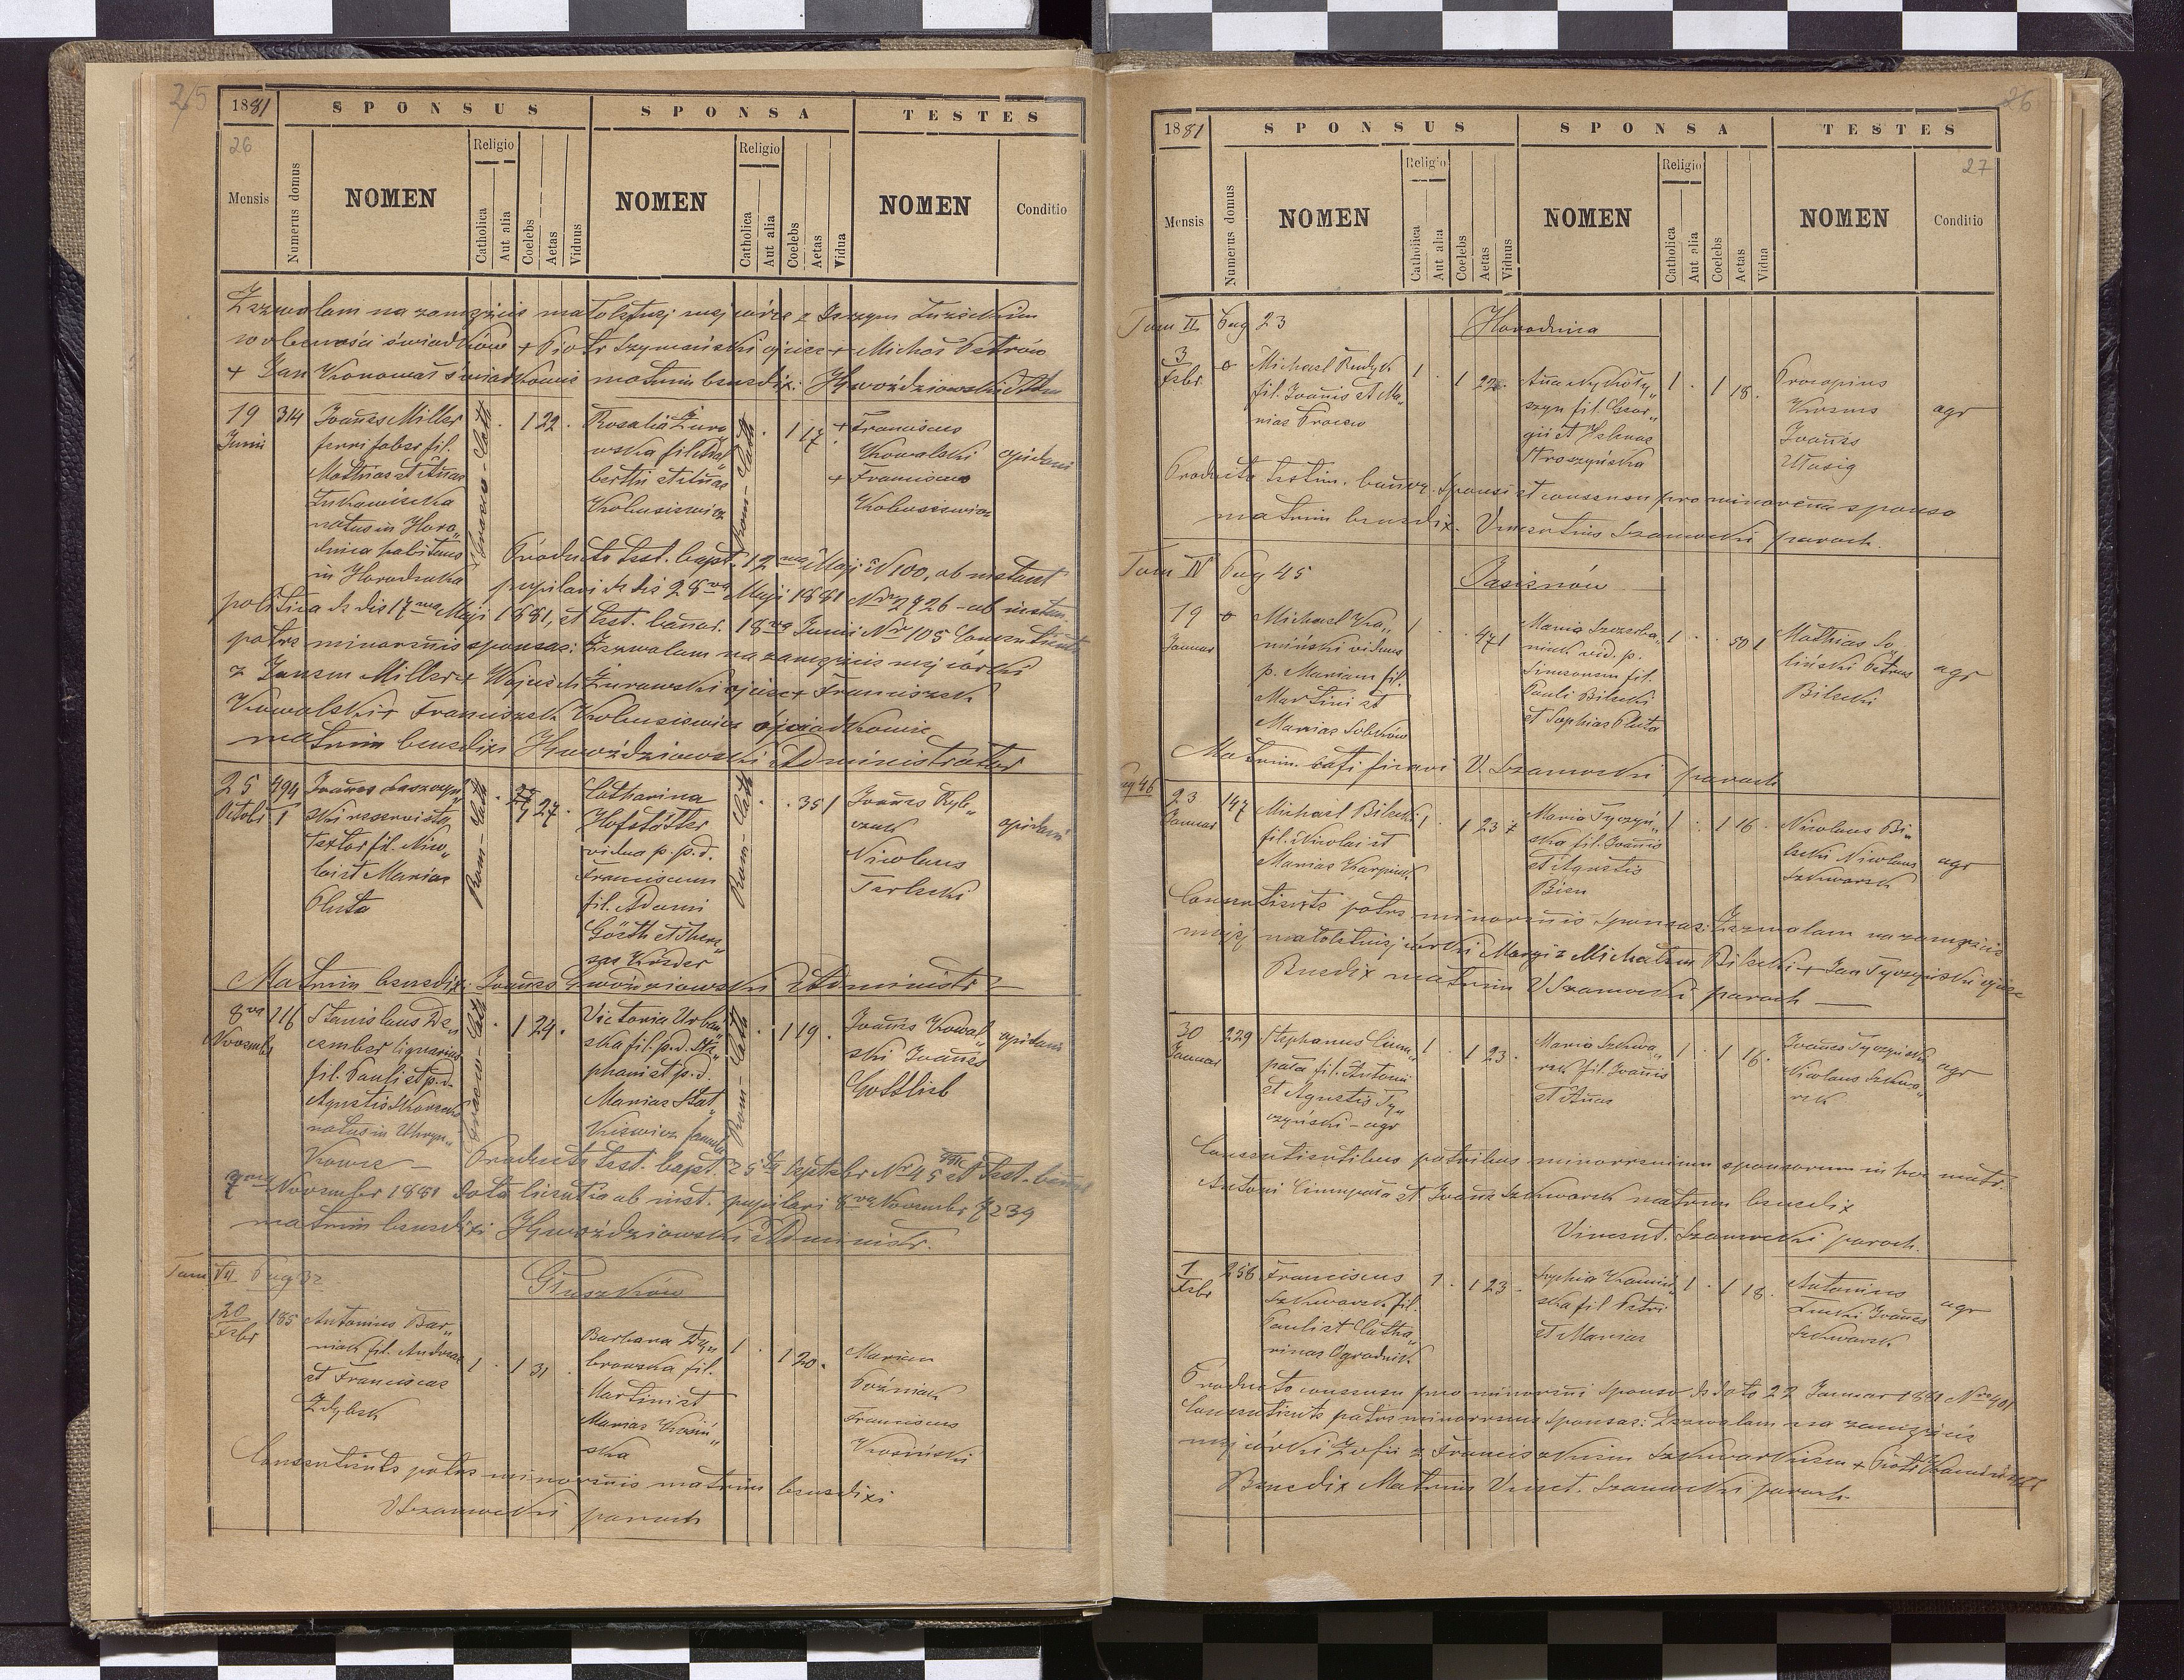 25
1881
SPONSUS
SPONSA
TESTES
26
Mensis
Numerus domus
NOMEN
Religio
Catholica
Aut alia
Coelebs
Aetas
Viduus
NOMEN
Religio
Catholica
Aut alia
Coelebs
Aetas
Vidua
NOMEN
Conditio
Zezwalam na zamęzcie małoletniej mej córce z
w obecności świadków + Piotr Szymański ojciec + Michał Petrów
+ Jan Konował świadkowie matrim benedix: Gwoździowski
19 Junii
314
Joañes Miller
ferri faber fil.
Mathias et Añae
natus in Horo„
dnica habitans
in Horodenka
Graeco-Cath
1 22
Rosalia Żuro
wska fil Adal
berti et Añae
Kolusiewicz
Rom-Cath
1 17
+ Franciscus
Kowalski
+ Franciscus
Kolusiewicz
opidani
Producto test. bapt. 12 Maji N 100, ab instant
pupilari de dto 28 Maji 1881 Nr 2726 - ab instan.
politica de dto 17 Maji 1881, et test. bañor. 18 Junii Nr 105 Consentiente
patre minorenis sponsae: Zezwalam na zamęzcie mej córki
z Janem Miller + Wojciech Żurowski ojciec + Franciszek
Kowalski + Franciszek Kolusiewicz świadkowie
matrim benedixi Gwoździowski Administrator
25 Octobr
494
1
Joañes Laszczyń„
ski reservista
textor fil. Nico„
lai et Mariae
Pluta
Rom-Cath
27
Catharina
Hofstötter
vidua p. p. d.
Franciscum
fil. Adami
Görth et There„
sae Körder
Rom-Cath
35 1
Joañes Ryb„
czuk
Nicolaus
Terlecki
opidani
Matrim benedixi Joañes Gwoździowski Administr
8va Novembr
116
Stanislaus De„
cember lignarius
fil. Pauli et p. d.
Agnetis Skorecka
natus in Uhryn„
kowce
Graeco-Cath
1 24
Victoria Urbań
ska fil. p. d. Ste„
phani et p. d.
Mariae Stat„
kiewicz famula
Rom-Cath
1 19
Joañes Kowal„
ski Joañes
Gottlieb
opidani
Producto test. bapt. 25 Septebr Nr 45 et test. bañor
7 November 1881 data licentia ab inst. pupilari 8va Novembr 7239
matrim benedixi Gwoździowski Administr.
Tom VII Pag 32
Głuszków
20 Febr
185
Antonius Bar„
niak fil. Andreae
et Franciscae
Zdybek
1
1 31
Barbara Dy„
browska fil.
Martini et
Mariae Kosiń„
ska
1
1 20
Marian
Poźniak
Franciscus
Kosiński
Consentiente patre minorenis matrim benedixi
V Szamocki paroch
26
1881
SPONSUS
SPONSA
TESTES
27
Mensis
Numerus domus
NOMEN
Religio
Catholica
Aut alia
Coelebs
Aetas
Viduus
NOMEN
Religio
Catholica
Aut alia
Coelebs
Aetas
Vidua
NOMEN
Conditio
Tom II Pag 23
Horodnica
3 Febr
0
Michael Rudyk
fil. Joañis et Ma„
riae Procew
1
1 22
Aña Nykoły„
szyn fil. Geor„
gii et Helenae
Stroszyńska
1
1 18
Procopius
Joañes
Ułasig
agr
Producto testim. bañor. sponsi et consensu pro minorena sponsa
matrim benedix. Vincentius Szamocki paroch.
Tom IV Pag 45
Jasienów
19 Januar
0
Michael Ka„
miński viduus
p. Mariam fil.
Martini et
Mariae Sobków
1
47 1
Maria Szczerba„
niuk vid. p.
Simeonem fil.
Pauli Bilecki
et Sophiae Pluta
1
50 1
Mathias So„
liński Petrus
Bilecki
agr
Matrim. ratificavi V. Szamocki paroch
Pag 46
23 Januar
147
Michael Bilecki
fil. Nicolai et
Mariae Karpiuk
1
1 23
Maria Tyczyń„
ska fil. Joañis
et Agnetis
Bien
1
1 16
Nicolaus Bi„
lecki Nicolaus
Szkwarek
agr
Consentiente patre minorenis sponsae: Zezwalam na zamęzcie
mojej małoletniej córki Maryi z Michałem Bilecki + Jan Tyczyński ojciec
Benedix matrim V Szamocki paroch
30 Januar
229
Stephanus Cim„
pała fil. Antonii
et Agnetis Ty„
czyński - agr
1
1 23
Maria Szkwa„
rek fil. Joañis
et Añae
1
1 16
Joañes Tyczyński
Nicolaus Szkwa„
rek
agr
Consentientibus patribus minorenium sponsorum in hoc matr.
Antoni Cimpała et Joañe Szkwarek matrim benedix
Vincent. Szamocki paroch.
1 Febr
256
Franciscus
Szkwarek fil.
Pauli et Catha„
rinae Ogrodnik
1
1 23
Sophia Kamiń„
ska fil Petri
et Mariae
1
1 18
Antonius
Joañes
Szkwarek
agr
Producto consensu pro minoreni sponso de dato 22 Januar 1881 Nr 401
Consentiente patre minorenis sponsae: Zezwalam na zamęzcie
mej córki Zofii z Franciszkiem Szkwarkiem + Piotr Kamiński
Benedix Matrim Vincet. Szamocki paroch